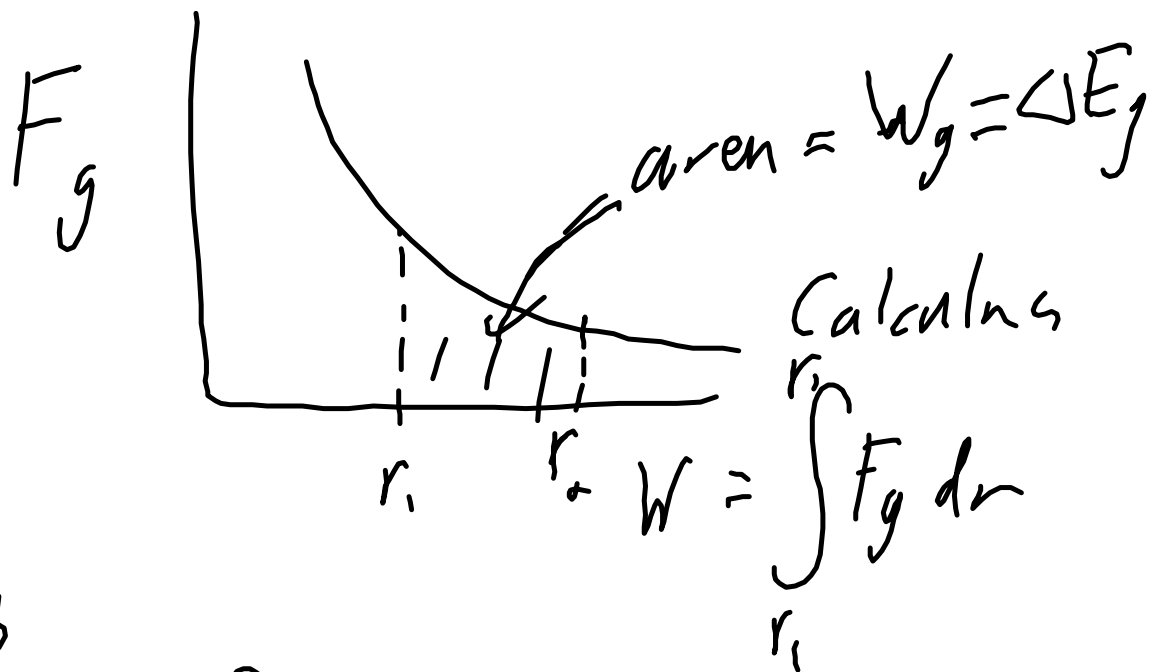 F_g
area = W_g = ΔE_g
Calculus
r₁ r₂
W = ∫ F_g dr
r₁